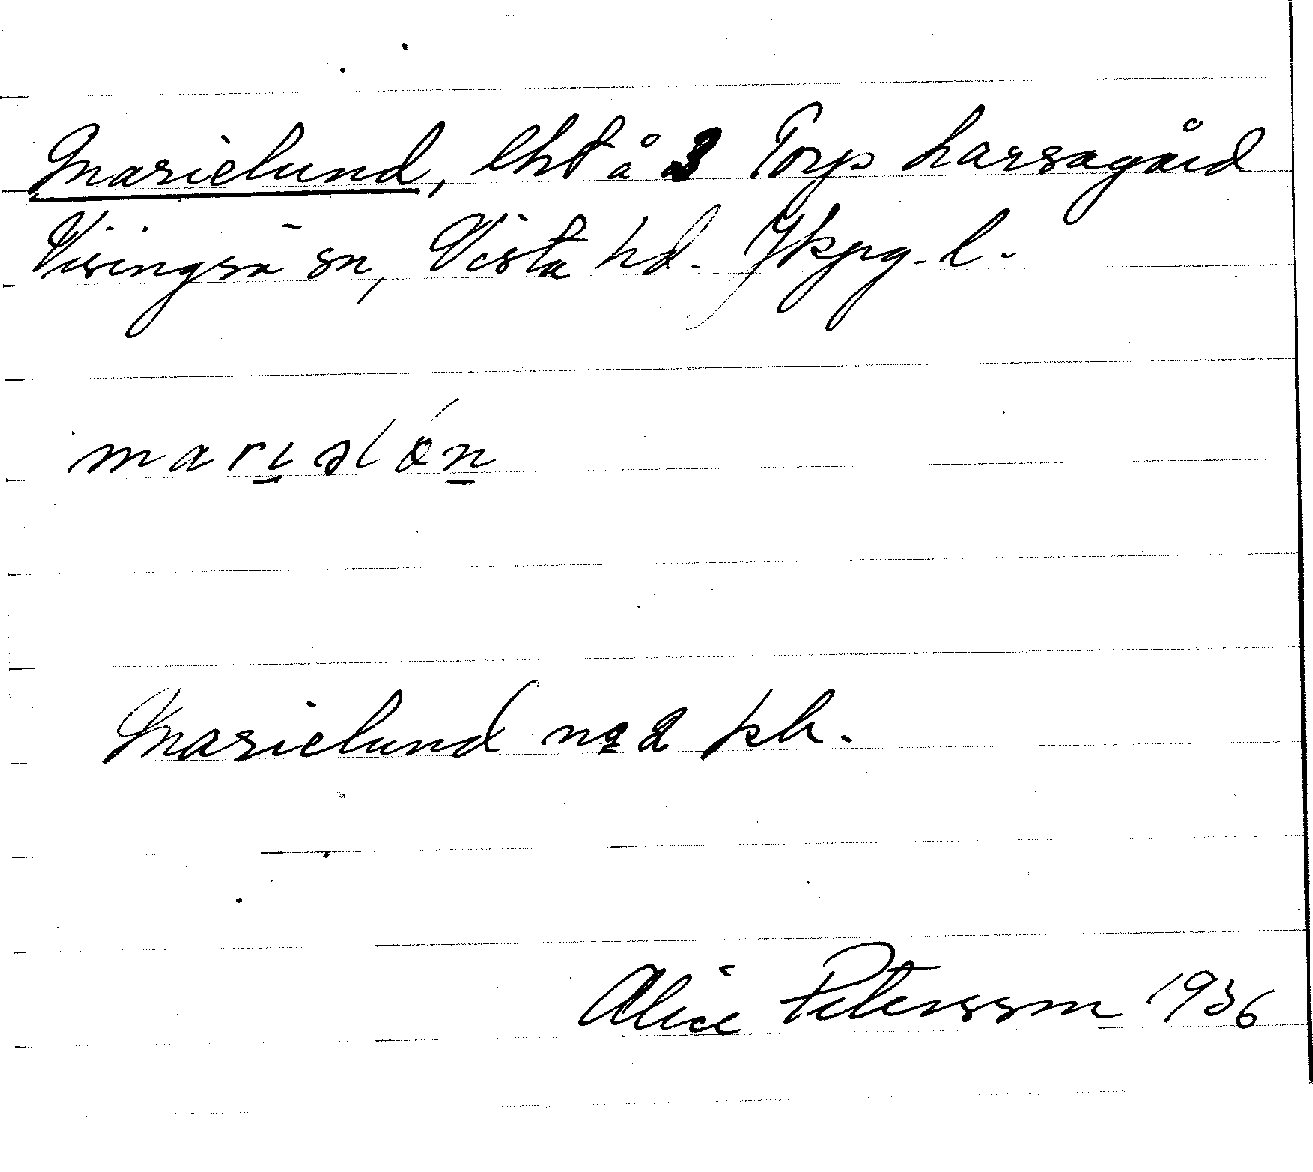 Marielund, lht å 3 Torp Larsagård
Visingsö sn, Vista hd. Jkpg. l.
mariəlón
Marielund n:o 2 pk.
Alice Petersson 1936